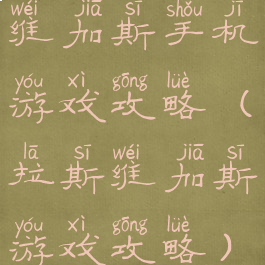 wéi jiā sī shǒu jī
维加斯手机
yóu xì gōng lüè
游戏攻略（
lā sī wéi jiā sī
拉斯维加斯
yóu xì gōng lüè
游戏攻略）